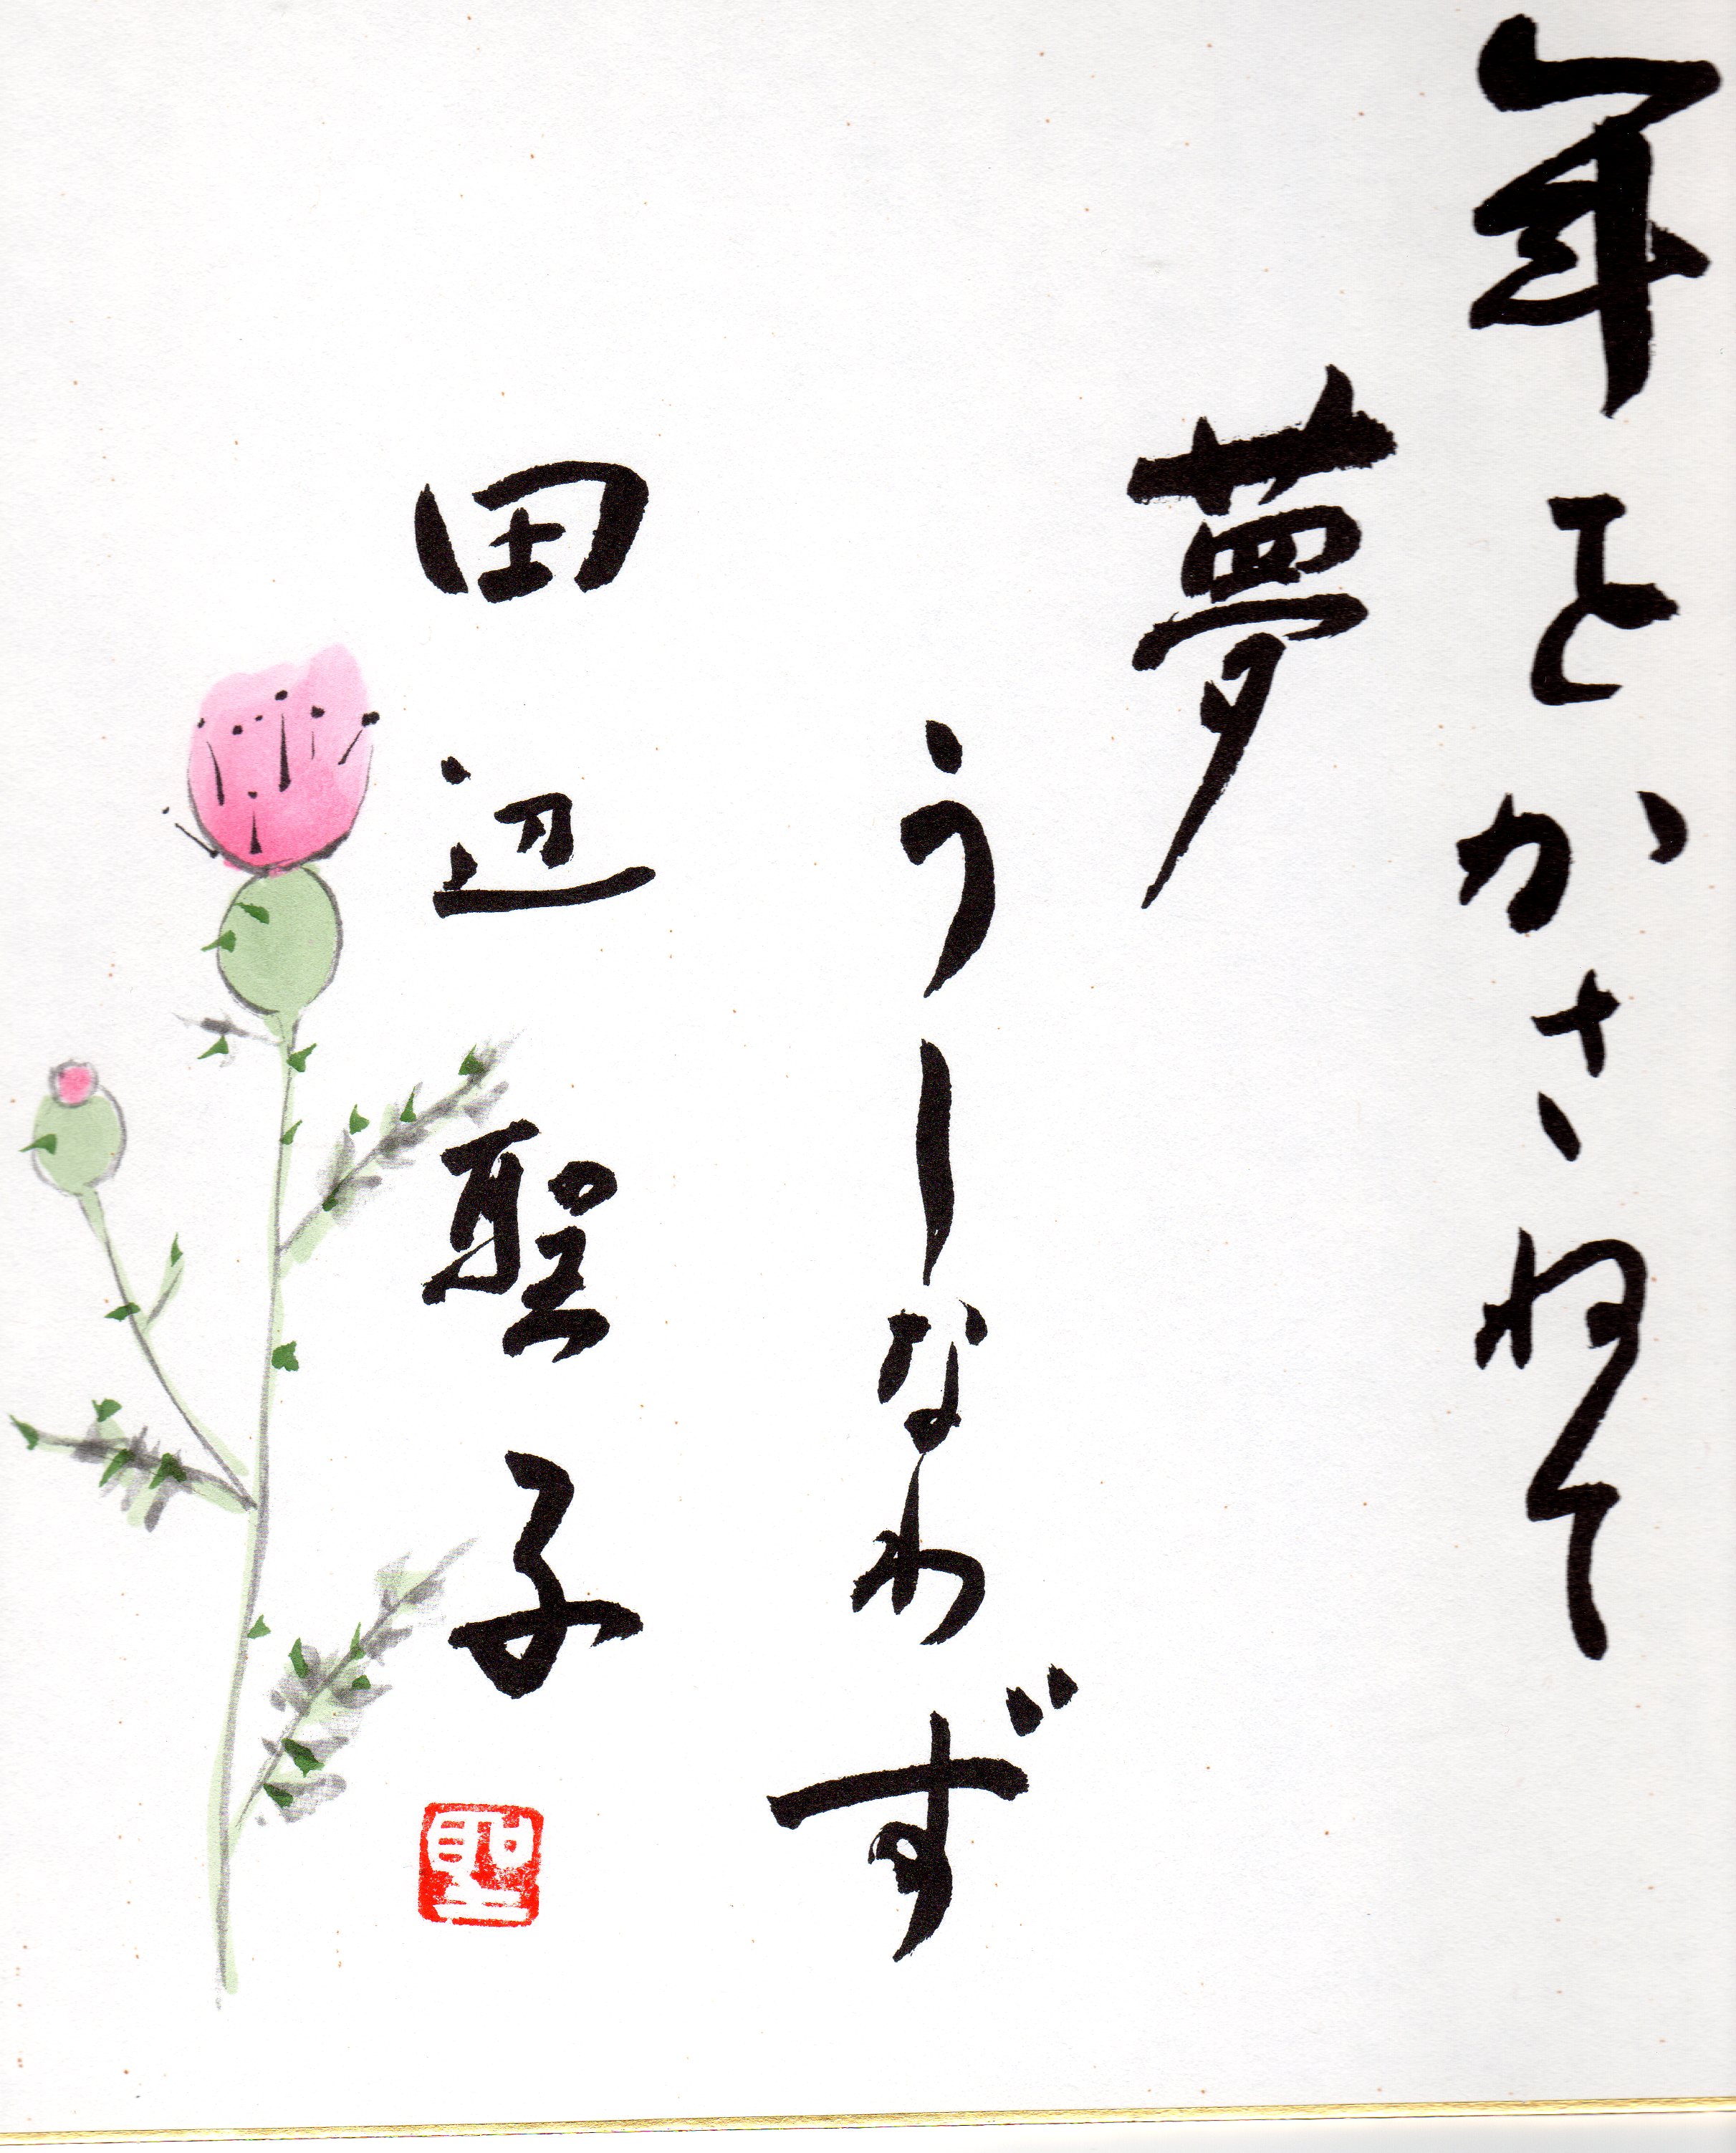 年をかさねて
夢
うしなわず
田辺聖子
聖